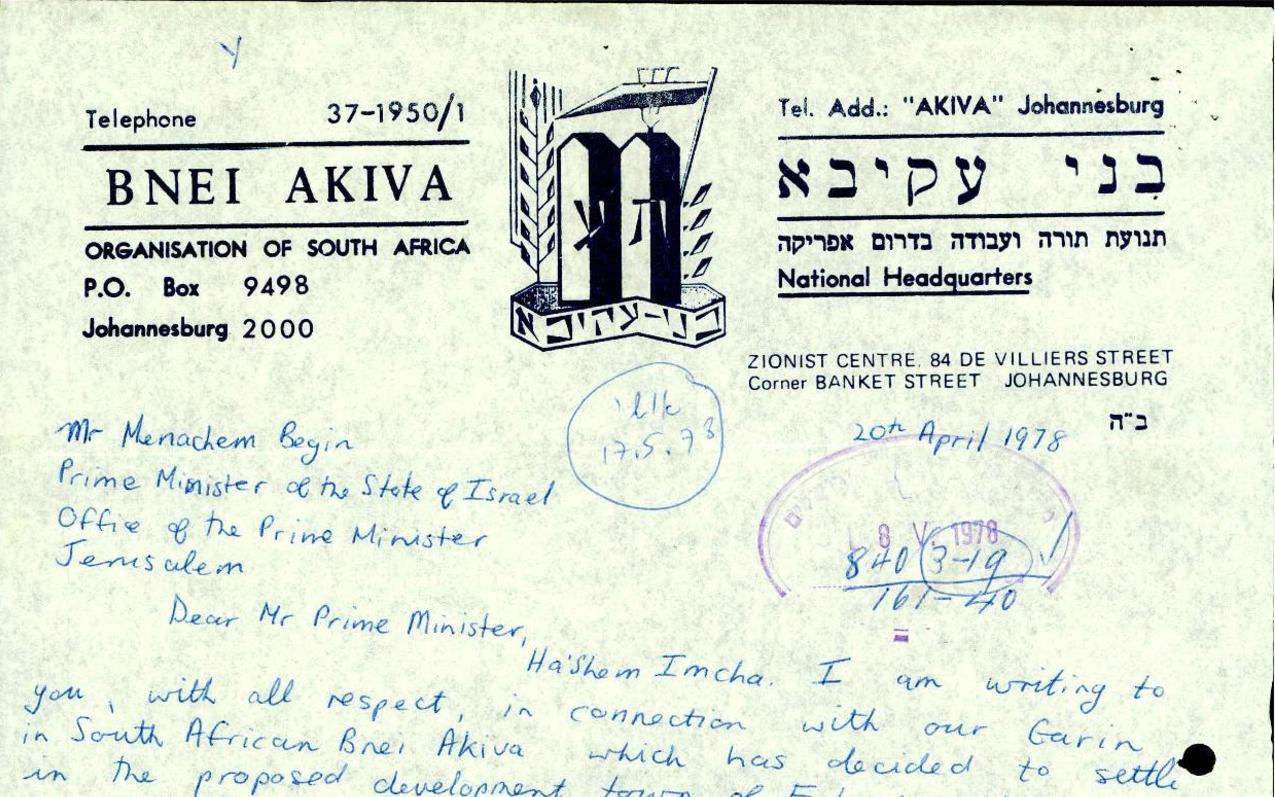 Telephone 37-1950/1
BNEI AKIVA
ORGANISATION OF SOUTH AFRICA
P.O. Box 9498
Johannesburg 2000
ת ע
בני-עקיבא
Tel. Add.: "AKIVA" Johannesburg
בני עקיבא
תנועת תורה ועבודה בדרום אפריקה
National Headquarters
ZIONIST CENTRE. 84 DE VILLIERS STREET
Corner BANKET STREET JOHANNESBURG
ב"ה
20th April 1978
17.5.78
Mr Menachem Begin
Prime Minister of the State of Israel
Office of the Prime Minister
Jerusalem
8 V 1978
840 3-19
161-40
Dear Mr Prime Minister,
Ha'Shem Imcha. I am writing to
you, with all respect, in connection with our Garin
in South African Bnei Akiva which has decided to settle
in the proposed development town of